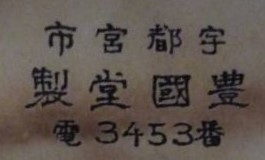 宇都宮市
豊國堂製
電3453番